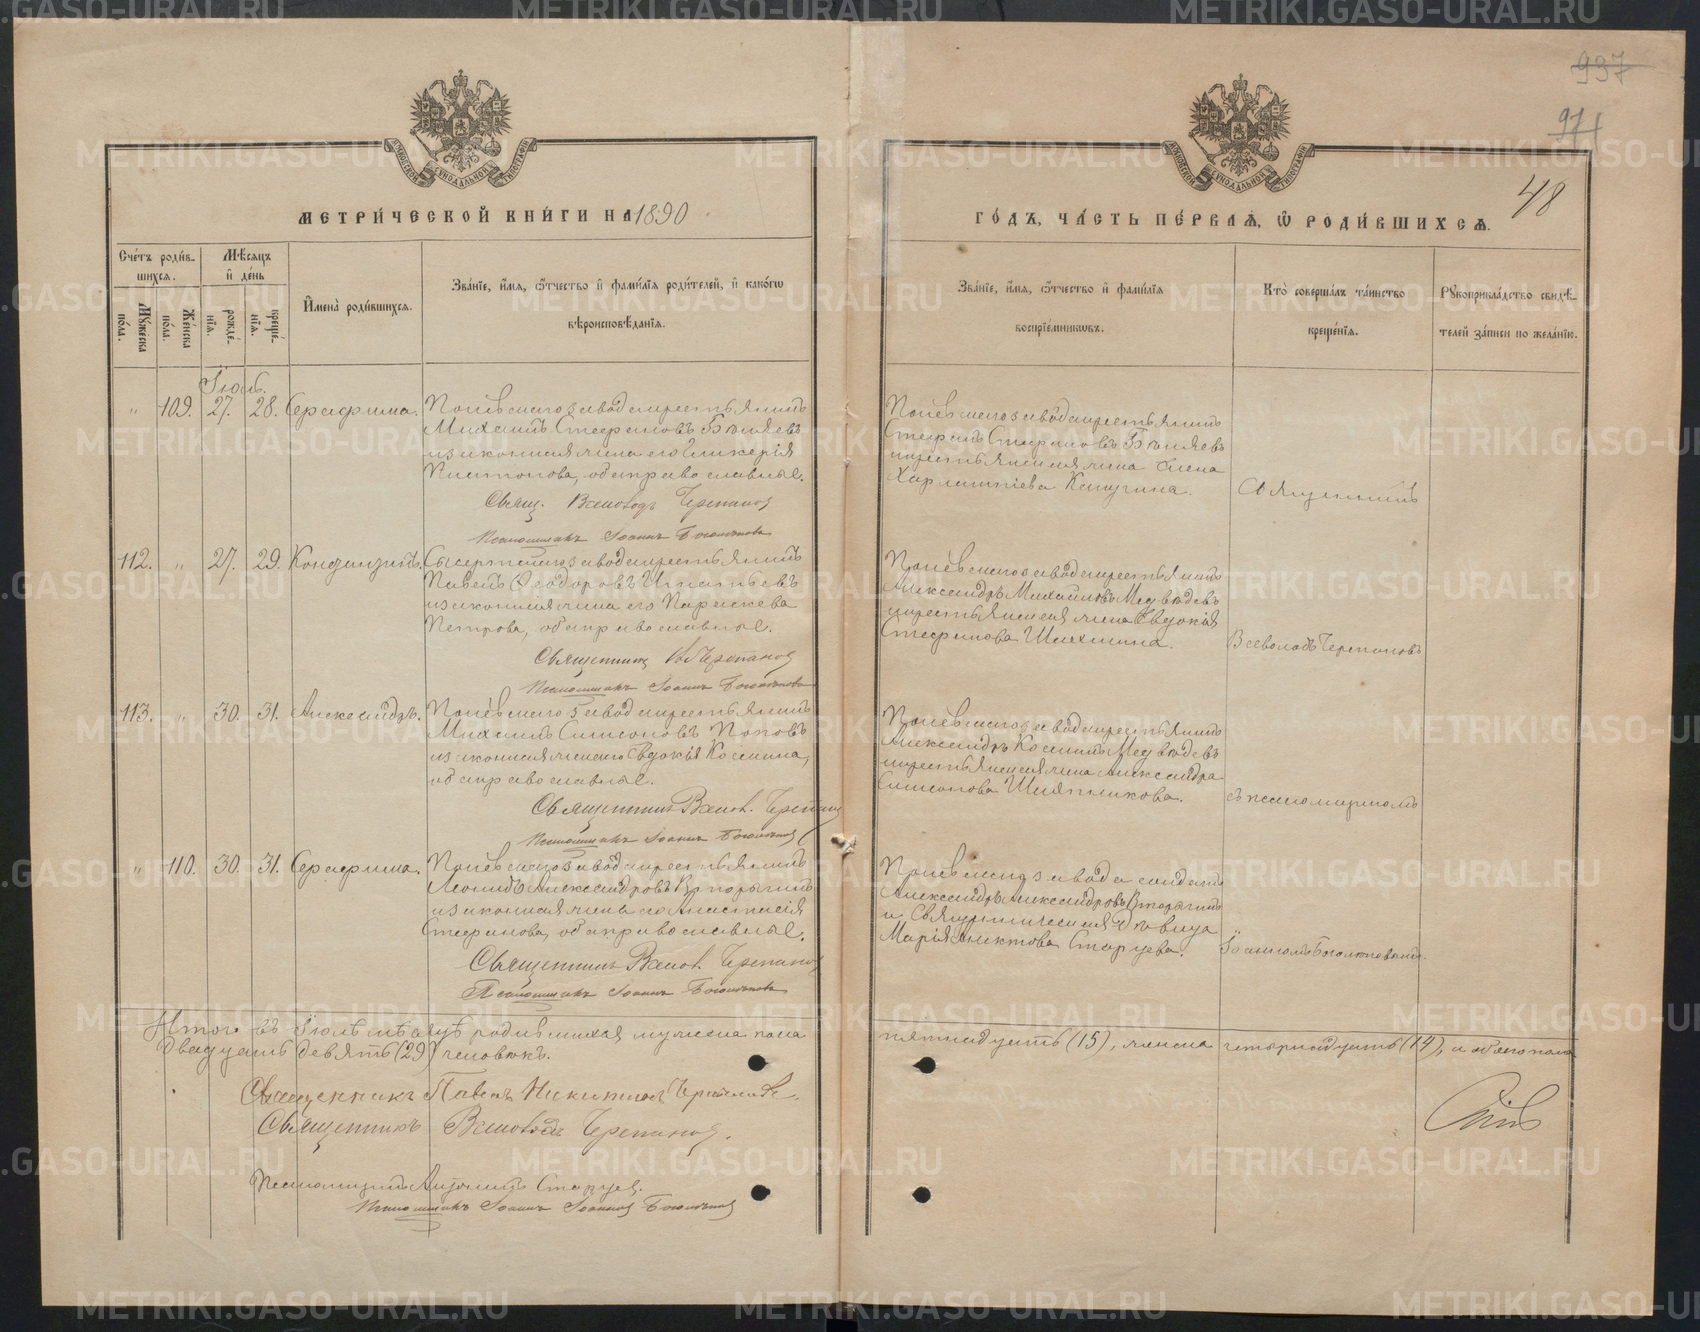 937
971
48
МЕТРИЧЕСКОЙ КНИГИ НА 1890
ГОДЪ, ЧАСТЬ ПЕРВАЯ, Ѿ РОДИВШИХСЯ.
Счетъ родив-
шихся.
Мужеска пола.
Женска пола.
Мѣсяцъ и день
рожденія.
крещенія.
Имена родившихся.
Званіе, имя, ѿтчество и фамилія родителей, и какогѡ
вѣроисповѣданія.
Званіе, имя, ѿтчество и фамилія
воспріемниковъ.
Кто совершалъ таинство
крещенія.
Рукоприкладство свидѣ-
телей записи по желанію.
Іюль.
" 109. 27. 28. Серафима.
завода крестьянинъ
Михаилъ Стефановъ Бѣляевъ
и законная жена его Гликерія
Платонова, оба православные.
Свящ. Всеволодъ Черепановъ
Псаломщикъ Іоаннъ Боголѣповъ
завода крестьянинъ
Стефанъ Стефановъ Бѣляевъ
крестьянская жена Елена
Харлампіева
Священникъ
112. " 27. 29.
Сысертскаго завода крестьянинъ
Павелъ Ѳеодоровъ Игнатьевъ
и законная жена его Параскева
Петрова, оба православные.
Священникъ Вс. Черепановъ
Псаломщикъ Іоаннъ Боголѣповъ
завода крестьянинъ
Александръ Михайловъ Медвѣдевъ
крестьянская жена Евдокія
Стефанова
Всеволодъ Черепановъ
113. " 30. 31. Александръ.
завода крестьянинъ
Михаилъ Симеоновъ Поповъ
и законная жена его Евдокія Космина,
оба православные.
Священникъ Всевол. Черепановъ
Псаломщикъ Іоаннъ Боголѣповъ
завода крестьянинъ
Александръ Косминъ Медвѣдевъ
крестьянская жена Александра
Симеонова Шляпникова.
съ псаломщикомъ
" 110. 30. 31. Серафима.
завода крестьянинъ
Леонидъ Александровъ Вторыгинъ
и законная жена его Анастасія
Стефанова, оба православные.
Священникъ Всевол. Черепановъ
Псаломщикъ Іоаннъ Боголѣповъ
завода солдатъ
Александръ Александровъ Вторыгинъ
и Священническая дѣвица
Марія Старцева.
Іоанномъ Боголѣповымъ.
Итого въ Іюлѣ мѣсяцѣ родившихся мужска пола
пятнадцать (15), женска четырнадцать (14), а обоего пола
двадцать девять (29) человѣкъ.
Священникъ Павелъ Никитинъ
Священникъ Всеволодъ Черепановъ.
Псаломщикъ Старцевъ.
Псаломщикъ Іоаннъ Іоанновъ Боголѣповъ